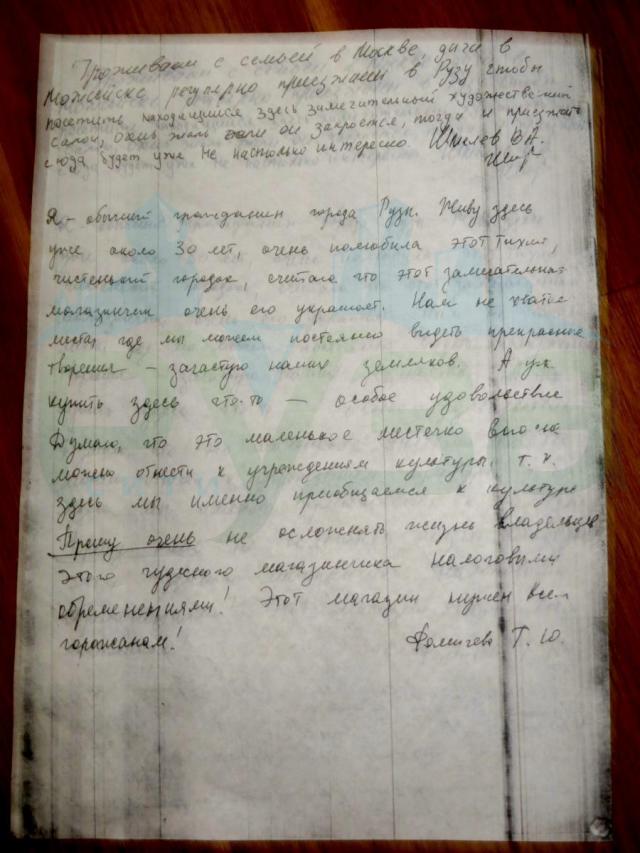 Проживаем с семьей в Москве, дача в
Можайске регулярно приезжаем в Рузу чтобы
посетить находящийся здесь замечательный художественный
салон, очень жаль если он закроется, тогда и приезжать
сюда будет уже не настолько интересно
Я - обычный гражданин города Рузы. Живу здесь
уже около 30 лет, очень полюбила этот тихий,
чистенький городок, считаю что этот замечательный
магазинчик очень его украшает. Нам не хватает
места, где мы можем постоянно видеть прекрасные
творения - зачастую наших земляков. А уж
купить здесь что-то - особое удовольствие
Думаю, что это маленькое местечко вполне
можно отнести к учреждениям культуры, т.к.
здесь мы именно приобщаемся к культуре
Прошу очень не осложнять жизнь владельцев
этого чудесного магазинчика налоговыми
обременениями! Этот магазин нужен всем
горожанам! Т.Ю.